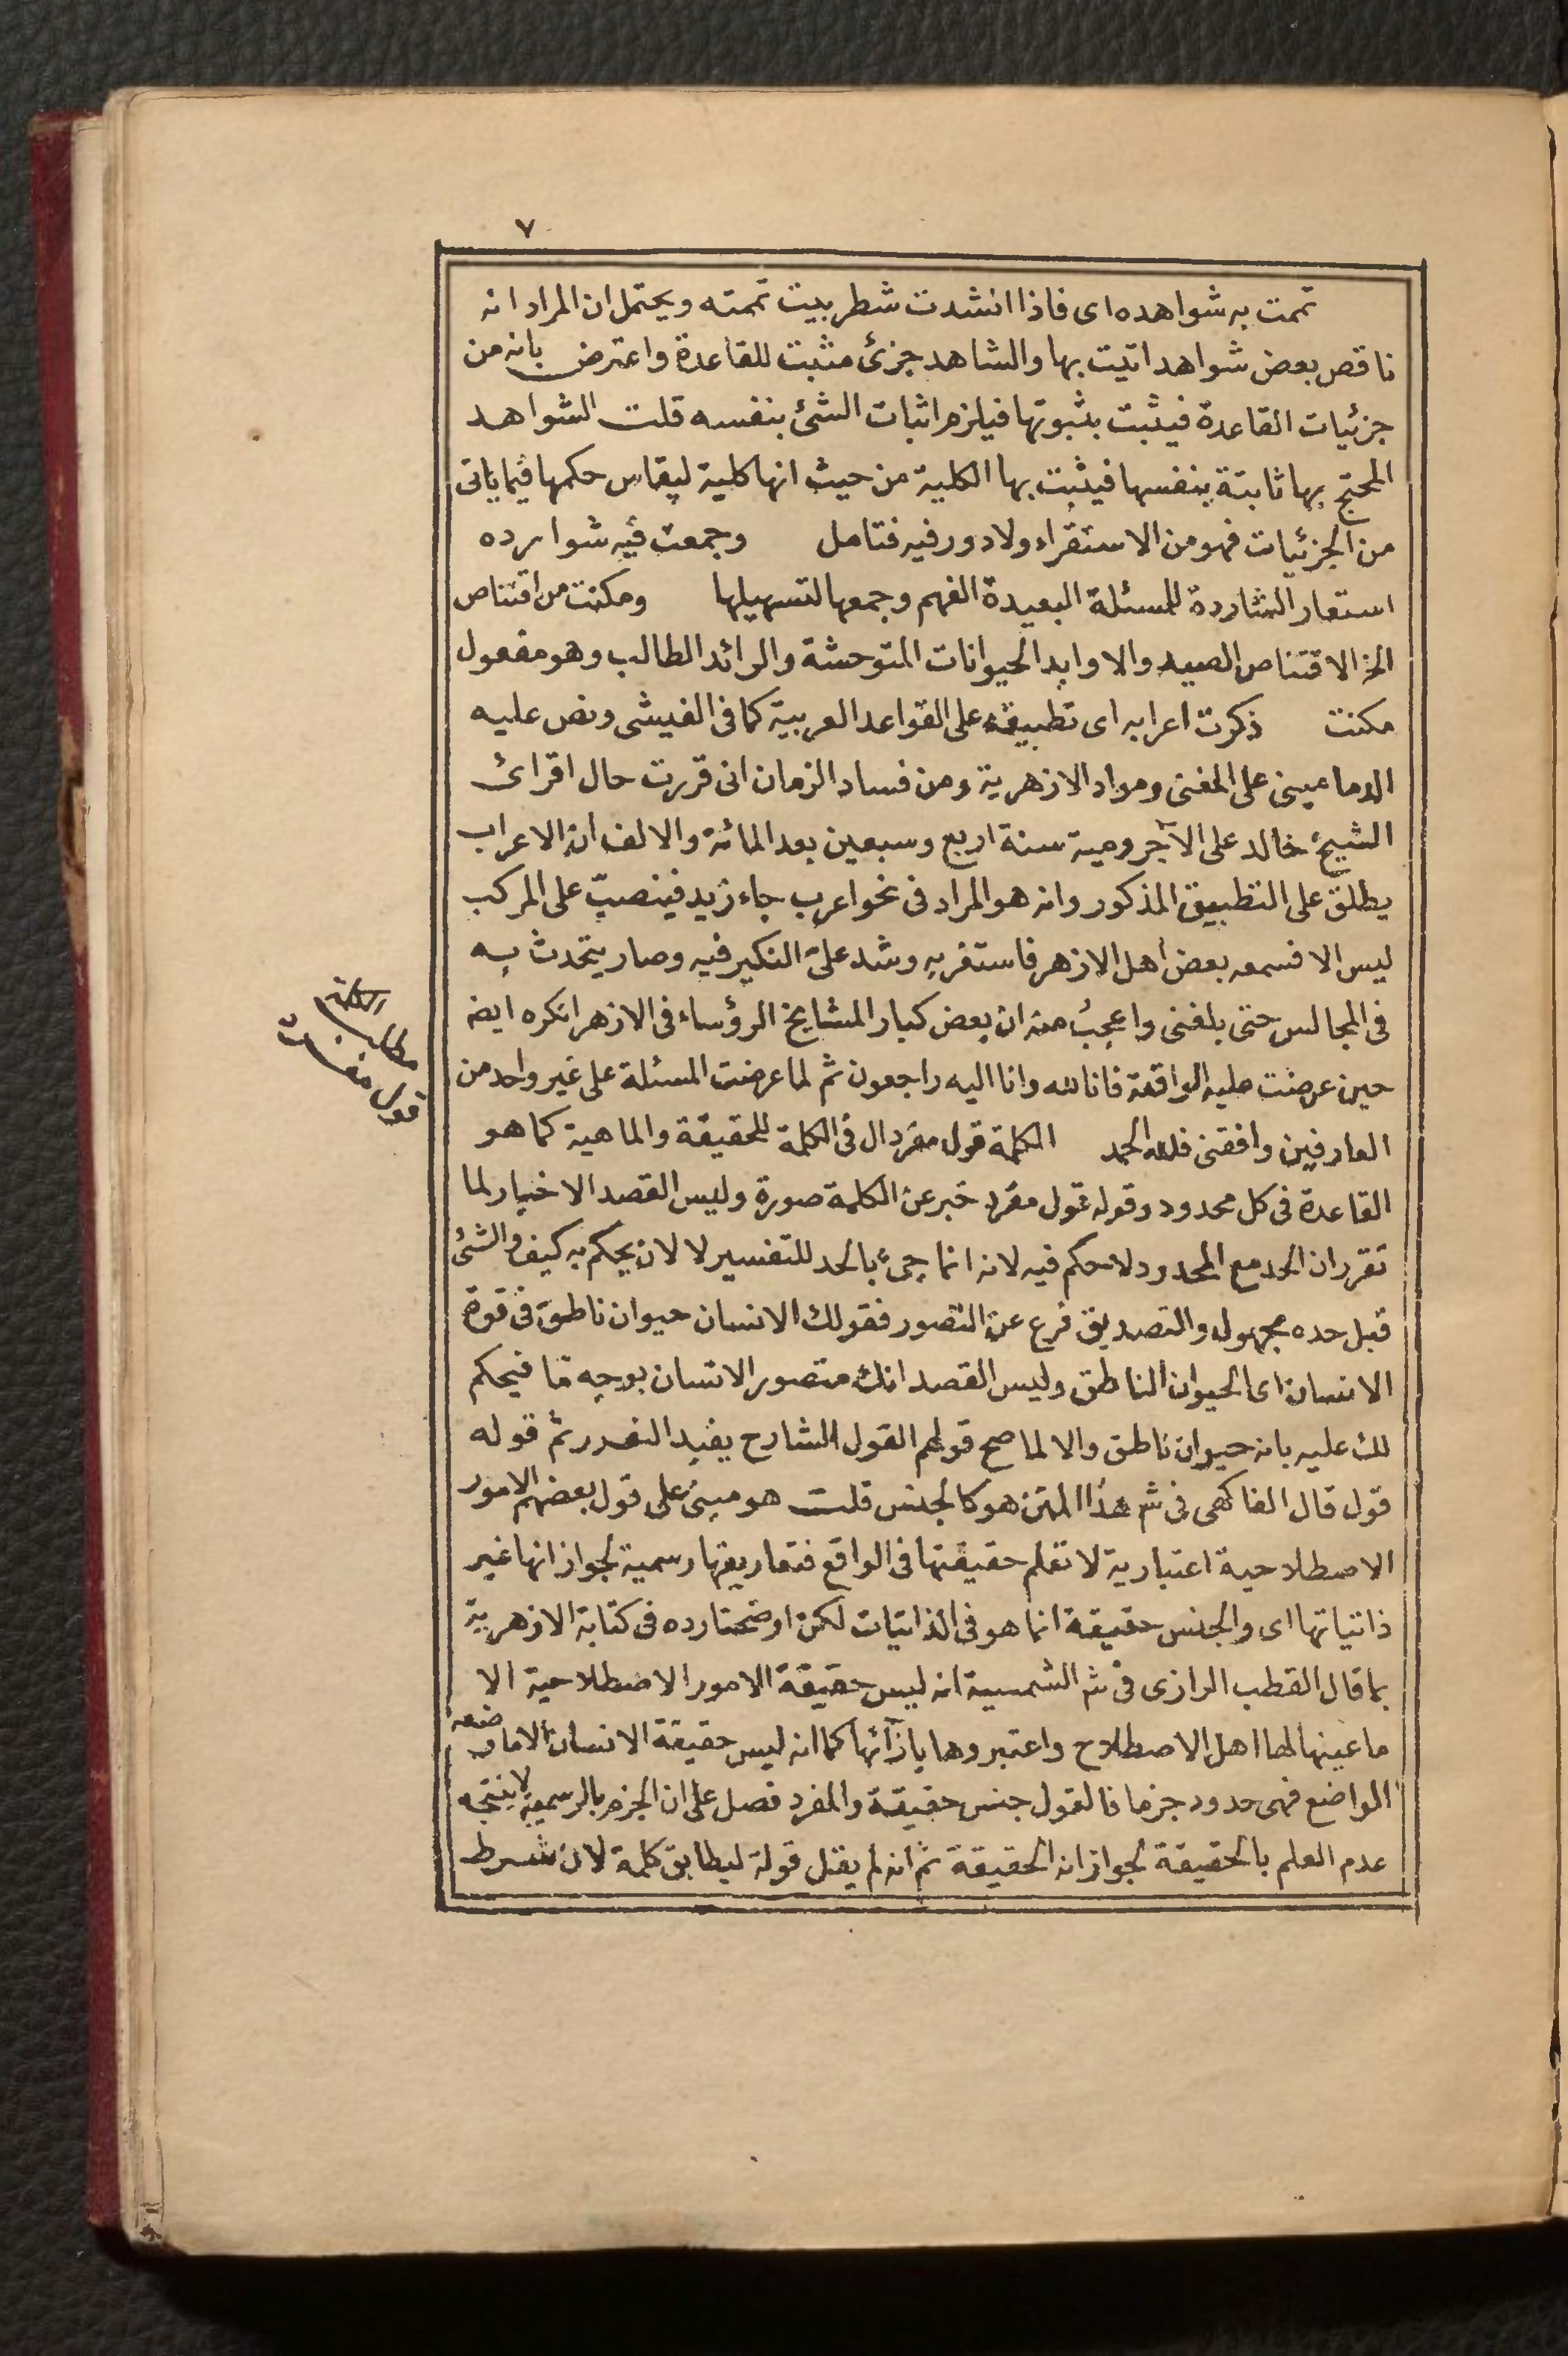 ٧
تممت به شواهده اى فاذا انشدت شطر بيت تممته ويحتمل ان المراد انه
ناقص بعض شواهد اتيت بها والشاهد جزئ مثبت للقاعدة واعترض بانه من
جزئيات القاعدة فيثبت بثبوتها فيلزم اثبات الشئ بنفسه قلت الشواهد
المحتج بها ثابتة بنفسها فيثبت بها الكلية من حيث انها كلية ليقاس حكمها فيما ياتى
من الجزئيات فهو من الاستقراء ولا دور فيه فتامل وجمعت فيه شوارده
استعار الشاردة للمسئلة البعيدة الفهم وجمعها لتسهيلها ومكنت من اقتناص
الخ الاقتناص الصيد والاوابد الحيوانات المتوحشة والرائد الطالب وهو مفعول
مكنت ذكرت اعرابه اى تطبيقه على القواعد العربية كما فى الفيشى ونص عليه
الدمامينى على المغنى ومواد الازهرية ومن فساد الزمان انى قررت حال اقرائ
الشيخ خالد على الآجرومية سنة اربع وسبعين بعد المائة والالف ان الاعراب
يطلق على التطبيق المذكور وانه هو المراد فى نحو اعرب جاء زيد فينصبّ على المركب
ليس الا فسمعه بعض اهل الازهر فاستغربه وشد علىّ النكير فيه وصار يتحدث به
فى المجالس حتى بلغنى واعجب منه ان بعض كبار المشايخ الرؤساء فى الازهر انكره ايضه
حين عرضت عليه الواقعة فانا لله وانا اليه راجعون ثم لما عرضت المسئلة على غير واحد من
العارفين وافقنى فلله الحمد الكلمة قول مفرد ال فى الكلمة للحقيقة والماهية كما هو
القاعدة فى كل محدود وقوله قول مفرد خبر عن الكلمة صورة وليس القصد الاخبار لما
تقرر ان الحد مع المحدود لا حكم فيه لانه انما جئ بالحد للتفسير لا لان يحكم به كيف والشئ
قبل حده مجهول والتصديق فرع عن التصور فقولك الانسان حيوان ناطق فى قوة
الانسان اى الحيوان الناطق وليس القصد انك متصور الانسان بوجه ما فيحكم
لك عليه بانه حيوان ناطق والا لما صح قولهم القول الشارح يفيد التصور ثم قوله
قول قال الفاكهى فى شر هذا المتن هو كالجنس قلت هو مبنى على قول بعضهم الامور
الاصطلاحية اعتبارية لا تعلم حقيقتها فى الواقع فتعاريفها رسمية لجواز انها غير
ذاتياتها اى والجنس حقيقة انما هو فى الذاتيات لكن اوضحنا رده فى كتابة الازهرية
بما قال القطب الرازى فى شر الشمسية انه ليس حقيقة الامور الاصطلاحية الا
ما عينها لها اهل الاصطلاح واعتبروها بازآئها كما انه ليس حقيقة الانسان الا ما وضعه
الواضع فهى حدود جزما فالقول جنس حقيقة والمفرد فصل على ان الجزم بالرسمية لا ينتجه
عدم العلم بالحقيقة لجواز انه الحقيقة ثم انه لم يقل قولة ليطابق كلمة لان شرط
الكلمة
مطلب
قول مفرد